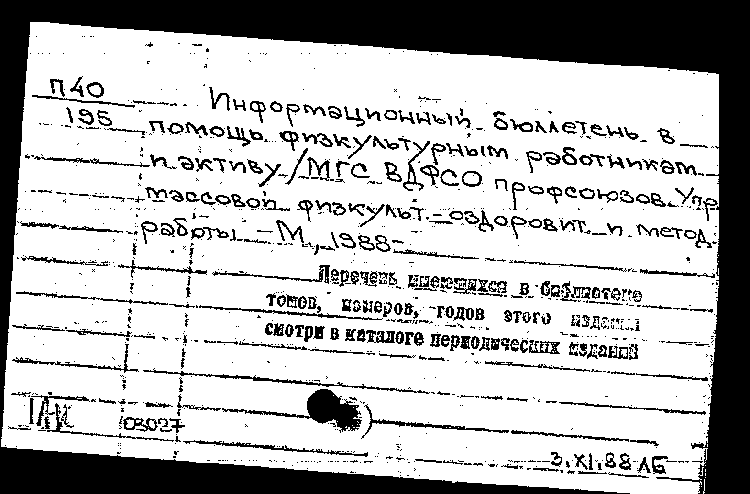 П40
195
Информационный бюллетень в
помощь физкультурным работникам
и активу / МГС ВДФСО профсоюзов. Упр
массовой физкульт-оздоровит. и метод.
работы. – М., 1988–
Перечень имеющихся в библиотеке
томов, номеров, годов этого издания
смотри в каталоге периодических изданий
03027
3.XI.88 ЛБ